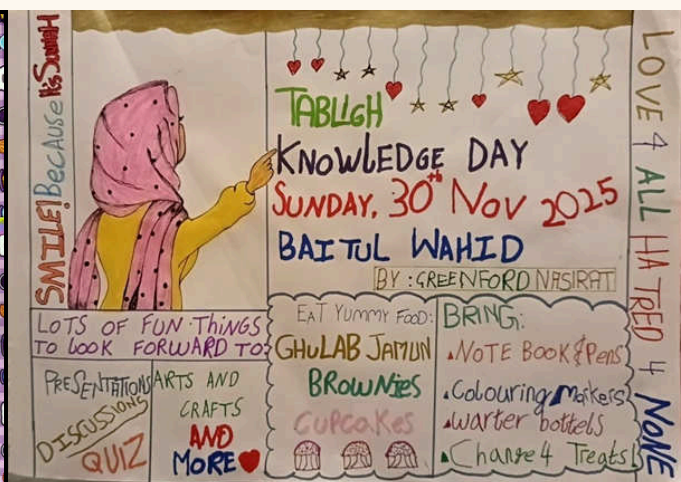 SMILE! BECAUSE It's SUNNAH
TABLIGH
KNOWLEDGE DAY
SUNDAY, 30th Nov 2025
BAITUL WAHID
BY: GREENFORD NASIRAT
LOVE 4 ALL HATRED 4 NONE
LOTS OF FUN THINGS
TO LOOK FORWARD TO:
PRESENTATIONS
DISCUSSIONS
QUIZ
ARTS AND
CRAFTS
AND
MORE
EAT YUMMY FOOD:
GHULAB JAMUN
BROWNIES
CUPCAKES
BRING:
NOTE BOOK & Pens
Colouring Markers
warter bottels
Change 4 Treats!